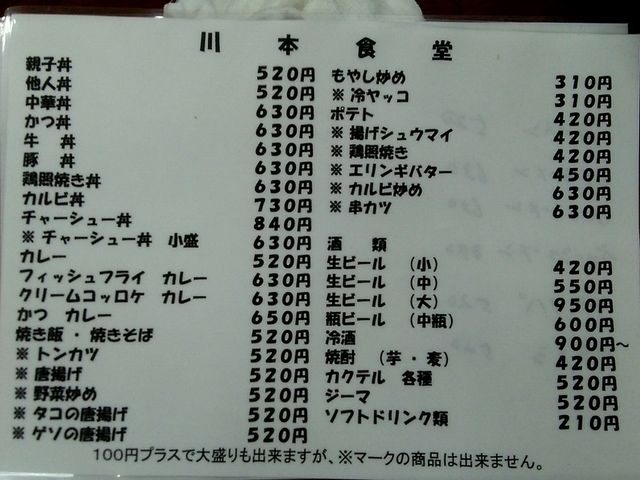 川本食堂
親子丼 520円
他人丼 520円
中華丼 630円
かつ丼 630円
牛 丼 630円
豚 丼 630円
鶏照焼き丼 630円
カルビ丼 730円
チャーシュー丼 840円
※ チャーシュー丼 小盛 630円
カレー 520円
フィッシュフライ カレー 630円
クリームコッロケ カレー 630円
かつ カレー 650円
焼き飯・焼きそば 520円
※ トンカツ 520円
※ 唐揚げ 520円
※ 野菜炒め 520円
※ タコの唐揚げ 520円
※ ゲソの唐揚げ 520円
もやし炒め 310円
※ 冷ヤッコ 310円
ポテト 420円
※ 揚げシュウマイ 420円
※ 鶏照焼き 420円
※ エリンギバター 450円
※ カルビ炒め 630円
※ 串カツ 630円
酒 類
生ビール (小) 420円
生ビール (中) 550円
生ビール (大) 950円
瓶ビール (中瓶) 600円
冷酒 900円~
焼酎 (芋・麦) 420円
カクテル 各種 520円
ジーマ 520円
ソフトドリンク類 210円
100円プラスで大盛りも出来ますが、※マークの商品は出来ません。